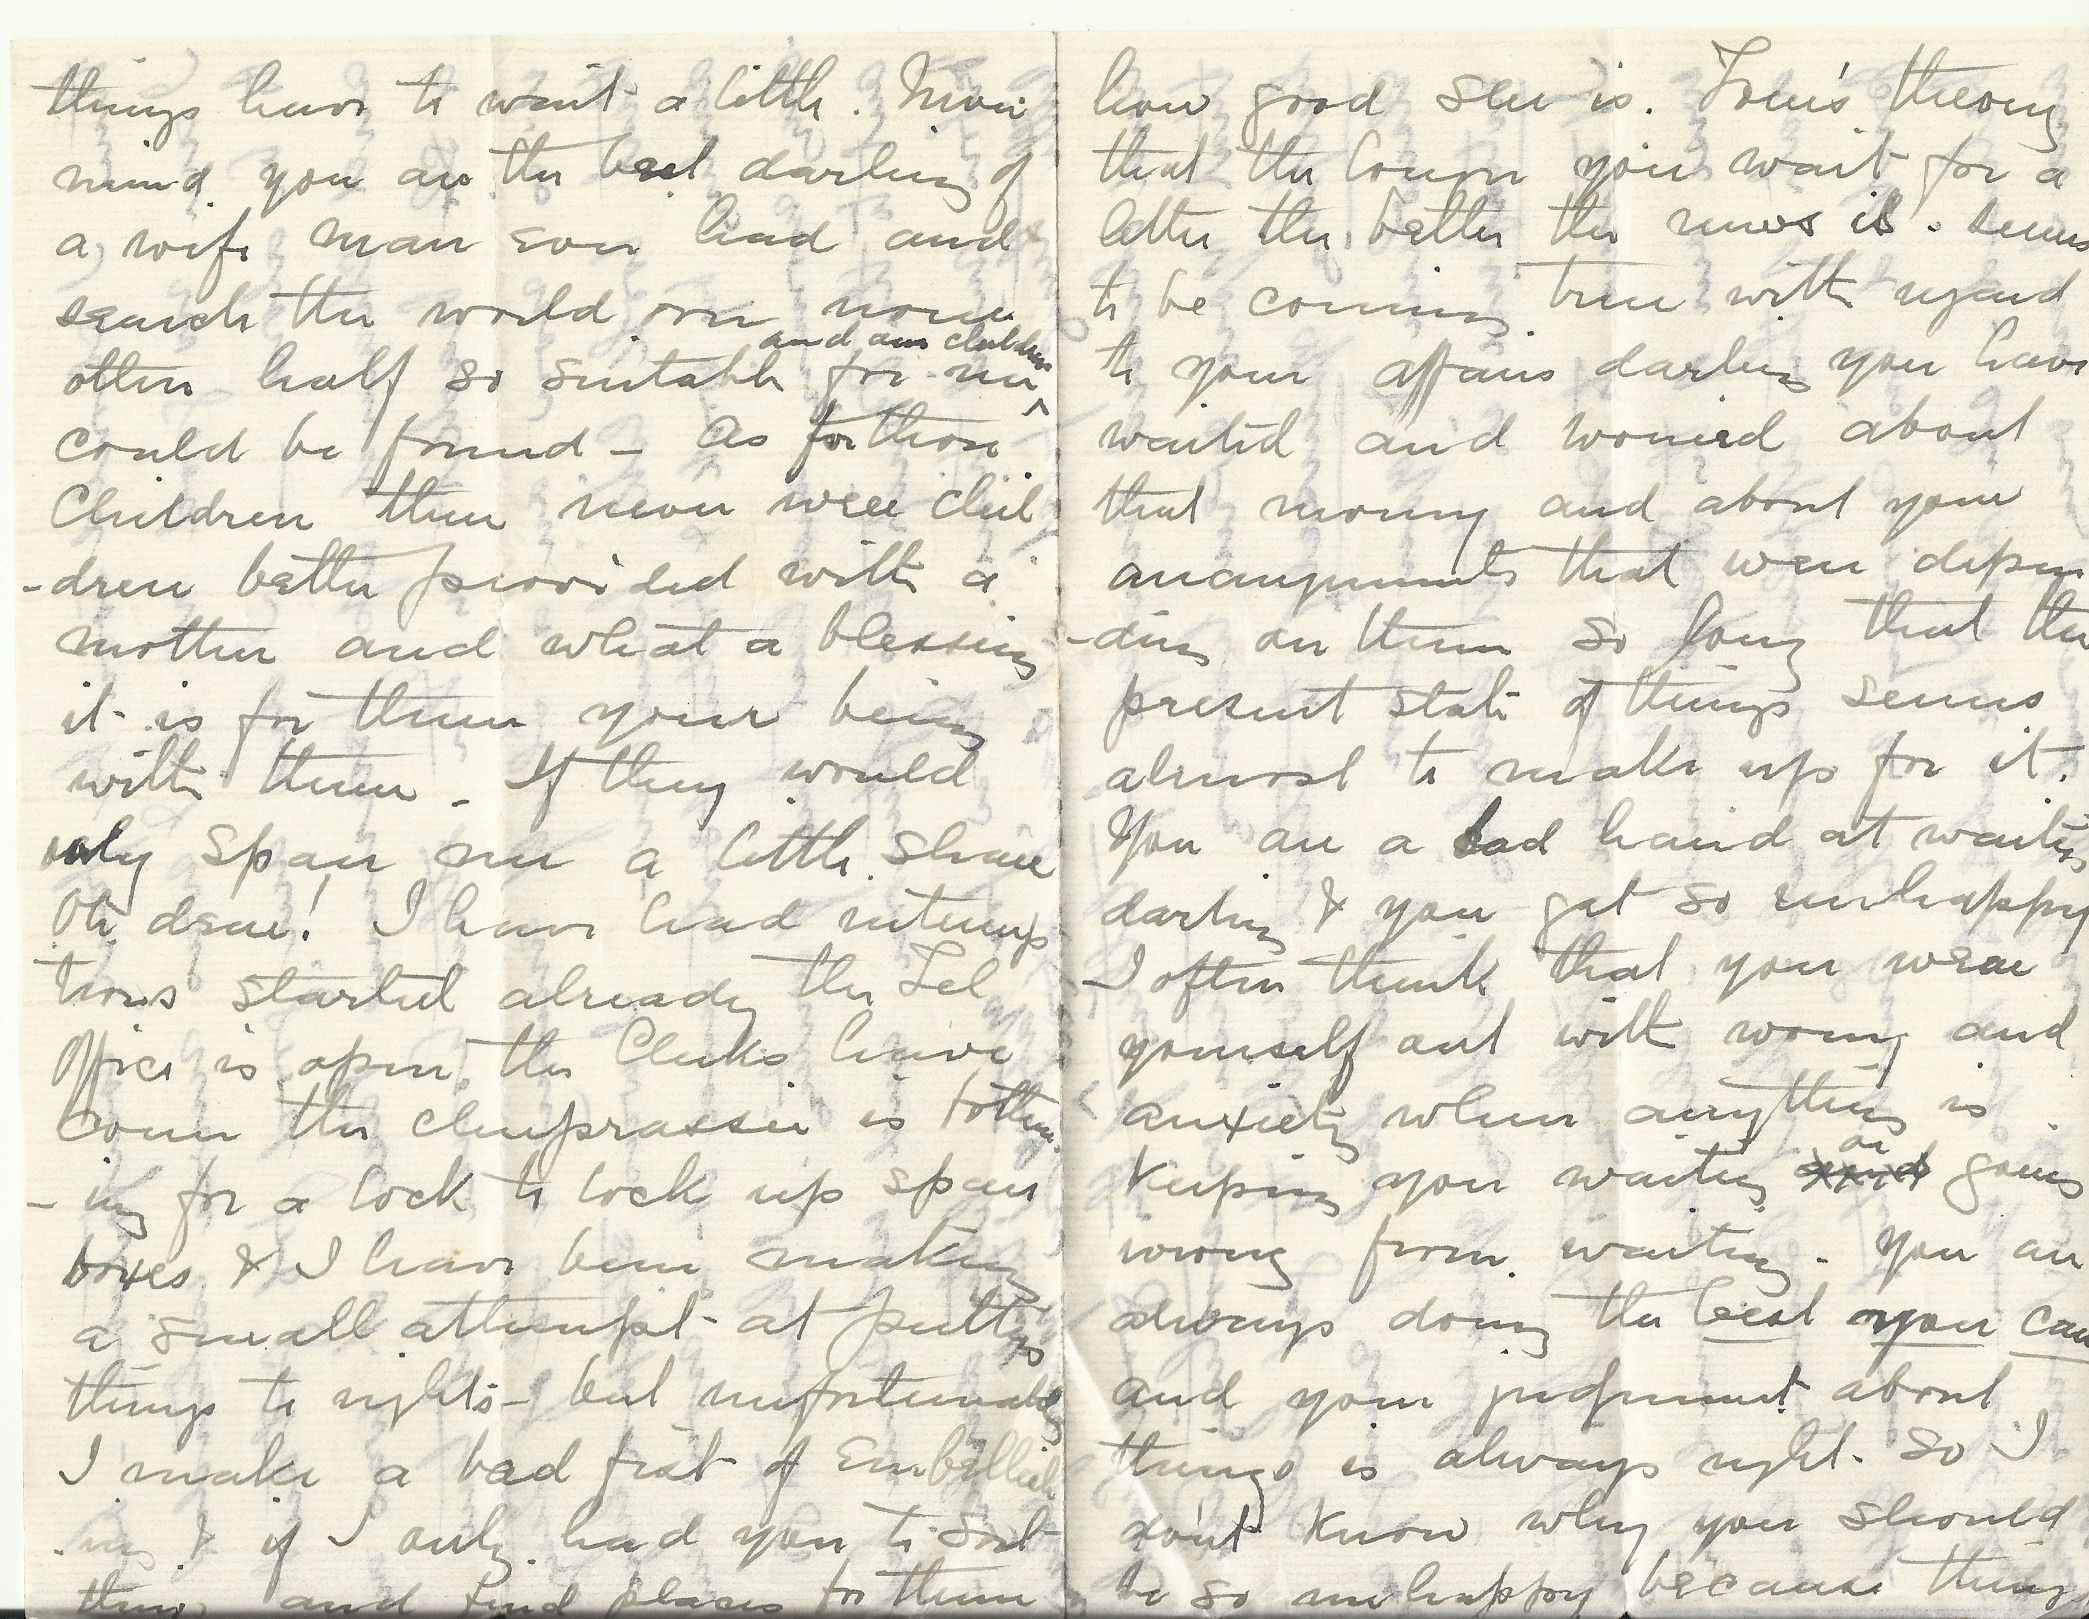 things have to wait a little. Never
mind you are the best darling of
a wife man ever had and
search the world over none
other half so suitable for me ^ and our children
could be found - As for those
Children there never were chil
-dren better provided with a
mother and what a blessing
it is for them your being
with them - If they would
only spare me a little share
Oh dear! I have had interrup
tions started already the Tel
Office is open the Clerks have
come the chuprassie is bother
-ing for a lock to lock up spare
boxes & I have been making
a small attempt at putting
things to rights - but unfortunately
I make a bad fist of Embellish
ing & if I only had you to sort
things and find places for them
how good she is.
theory
that the longer you wait for a
letter the better the news is. seems
to be coming true with regard
to your affairs darling you have
waited and worried about
that money and about your
arrangements that were depen
-ding on them so long that the
present state of things seems
almost to make up for it.
You are a bad hand at waiting
darling & you get so unhappy
I often think that you wear
yourself out with worry and
anxiety when anything is
keeping you waiting or going
wrong from waiting. You are
always doing the best you can
and your judgment about
things is always right. So I
don't know why you should
be so unhappy because things